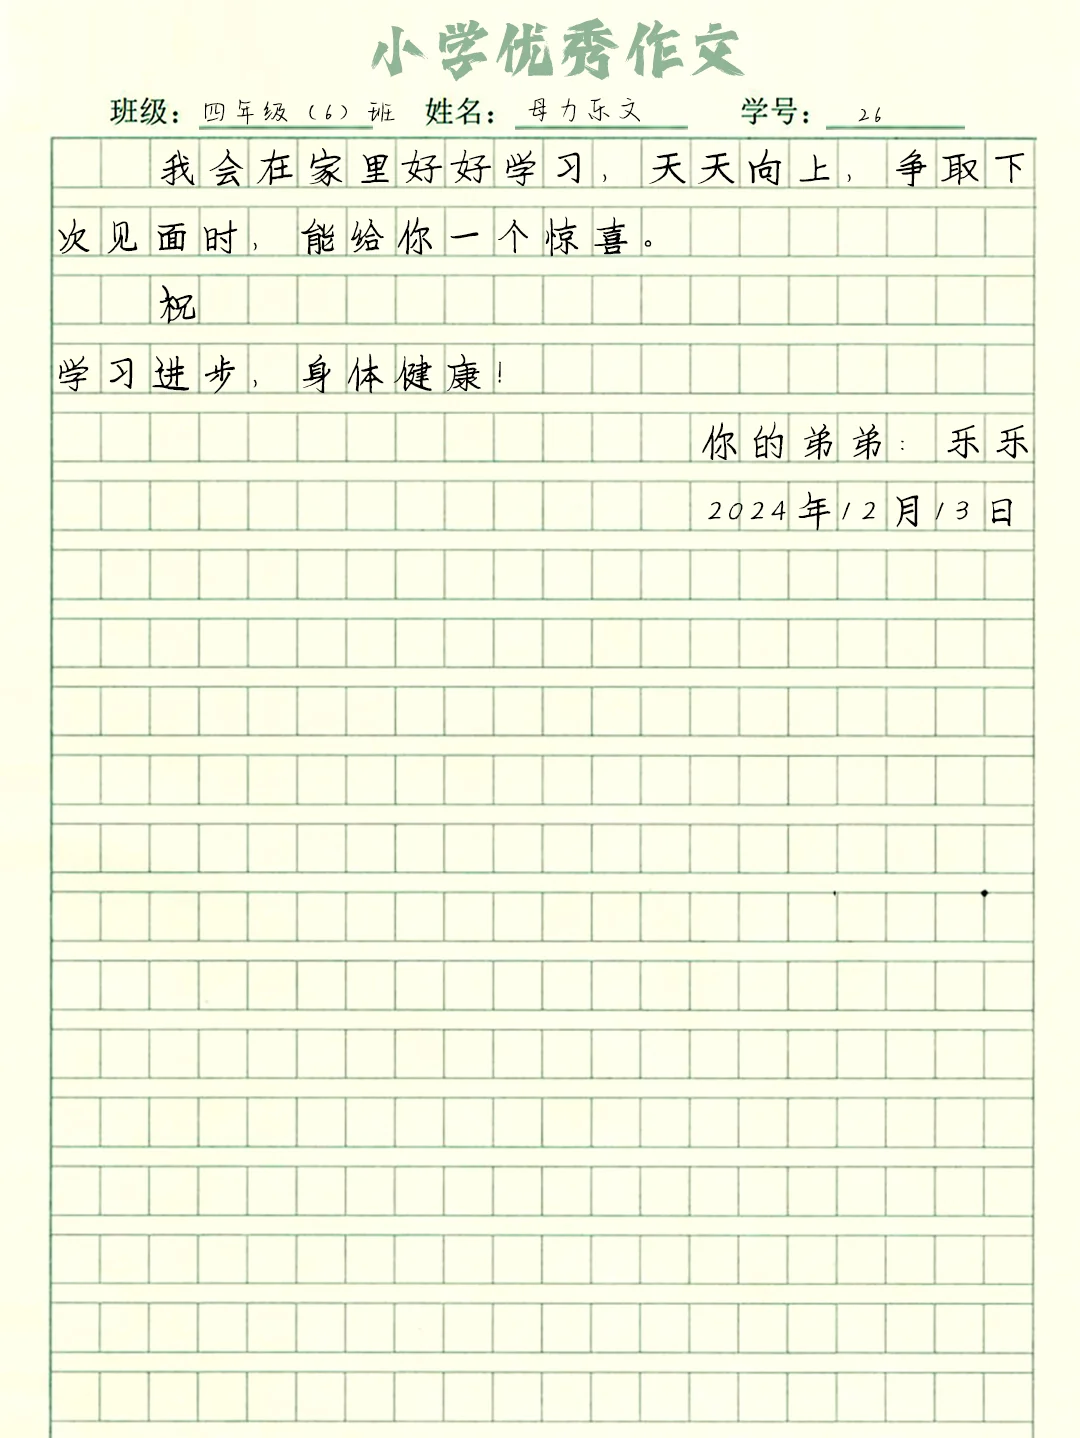 小学优秀作文
班级：四年级（6）班 姓名：母力乐文 学号：26
我会在家里好好学习，天天向上，争取下
次见面时，能给你一个惊喜。
祝
学习进步，身体健康！
你的弟弟：乐乐
2024年12月13日